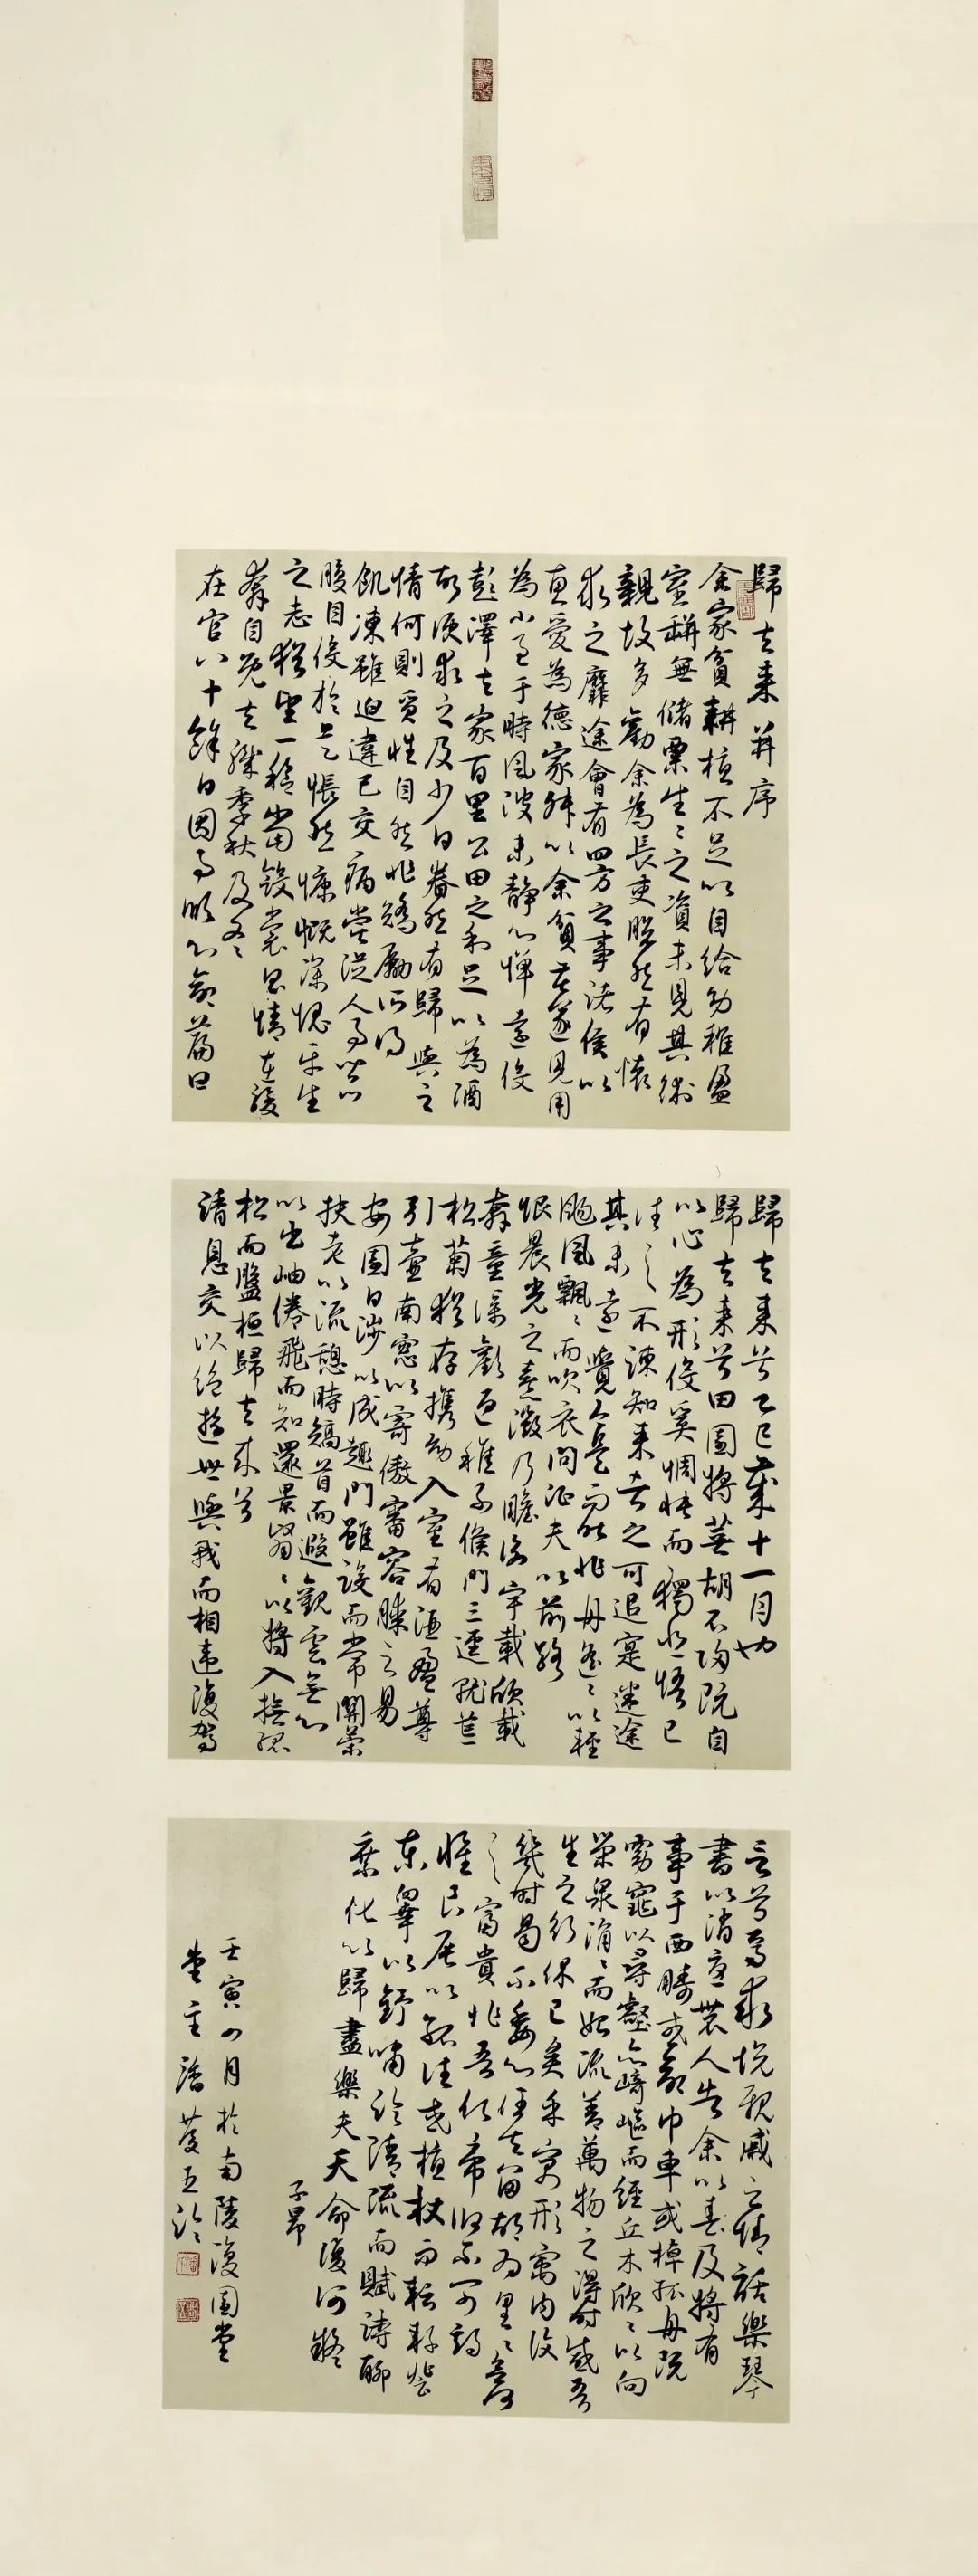 歸去来并序
余家貧耕植不足以自給幼稚盈
室缾無儲粟生〻之資未見其術
親故多勸余為長吏脱然有懷
求之靡途會有四方之事諸侯以
惠愛為德家叔以余貧苦遂見用
為小邑于時風波未静心惮遠役
彭澤去家百里公田之利足以為酒
故便求之及少日眷然有歸與之
情何則質性自然非矯厲所得
飢凍雖迫違己交病嘗従人事皆口
腹自役於是悵然慷慨深愧平生
之志猶望一稔當斂裳宵
奔自免去職季秋及冬
在官八十餘日因事順心命篇曰
歸去来兮乙巳歳十一月也
歸去来兮田園将蕪胡不歸既自
以心為形役奚惆悵而獨悲悟已
往之不諫知来者之可追寔迷途
其未遠覺今是而昨非舟遥〻以輕
颺風飄〻而吹衣问征夫以前路
恨晨光之熹微乃瞻衡宇載欣載
奔童僕歡迎稚子候門三逕就荒
松菊猶存携幼入室有酒盈尊
引壺
南窓以寄傲審容膝之易
安園日涉以成趣門雖設而常關策
扶老以流憩時矯首而遐觀雲無心
以出岫倦飛而知還景翳〻以将入撫孤
松而盤桓歸去来兮
請息交以绝遊世與我而相違復駕
言兮焉求悦親戚之情話樂琴
書以消憂農人告余以春及将有
事于西疇或命巾車或棹孤舟既
窈窕以尋壑亦崎嶇而經丘木欣〻以向
榮泉涓〻而始流善萬物之得時感吾
生之行休已矣乎寓形宇内復
幾时曷不委心任去留胡为
之富貴非吾
帝
不可期
懷良辰以孤往或植杖而耘耔登
東臯以舒嘯
清流而賦詩聊
乗化以歸盡樂夫天命復何疑
子昂
壬寅四月於南陵復園堂